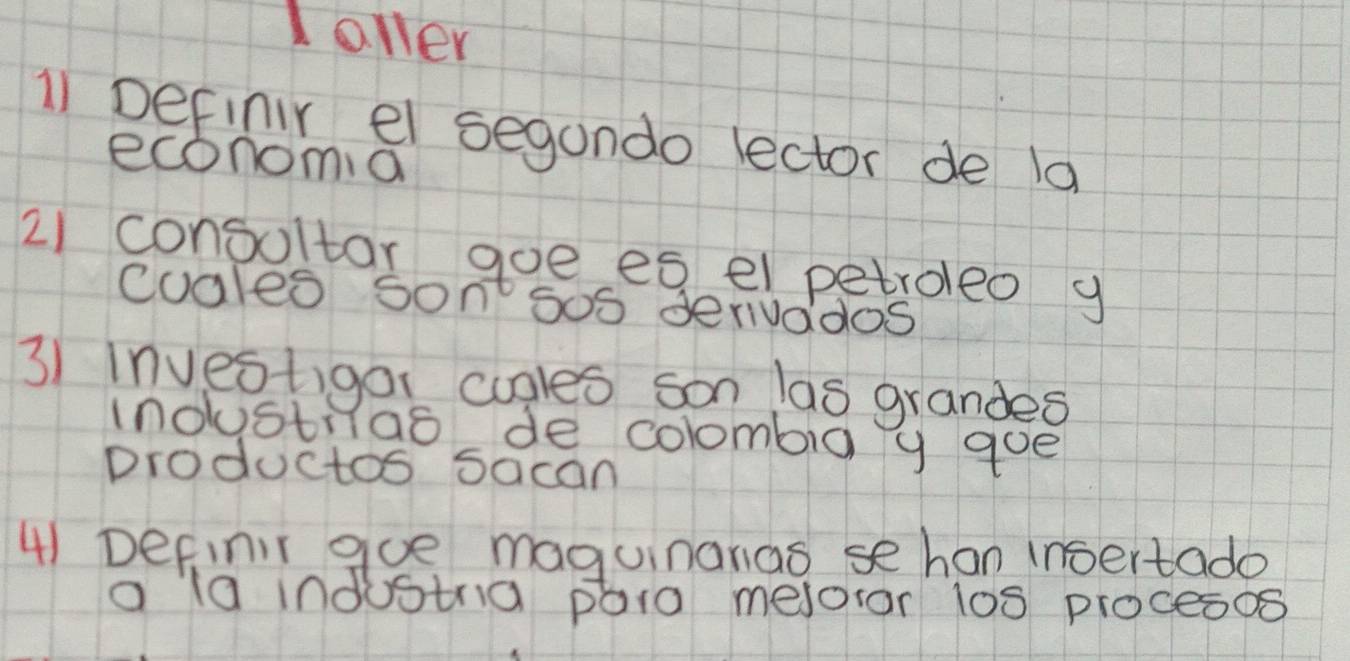 Taller
1) Definir el segundo lector de la
economia
2) consultar que es el petroleo y
cuales son sus derivados
3) investigar cuales son las grandes
industrias de colombia y que
productos sacan
4) Definir que maquinarias se han insertado
a la industria para mejorar los procesos